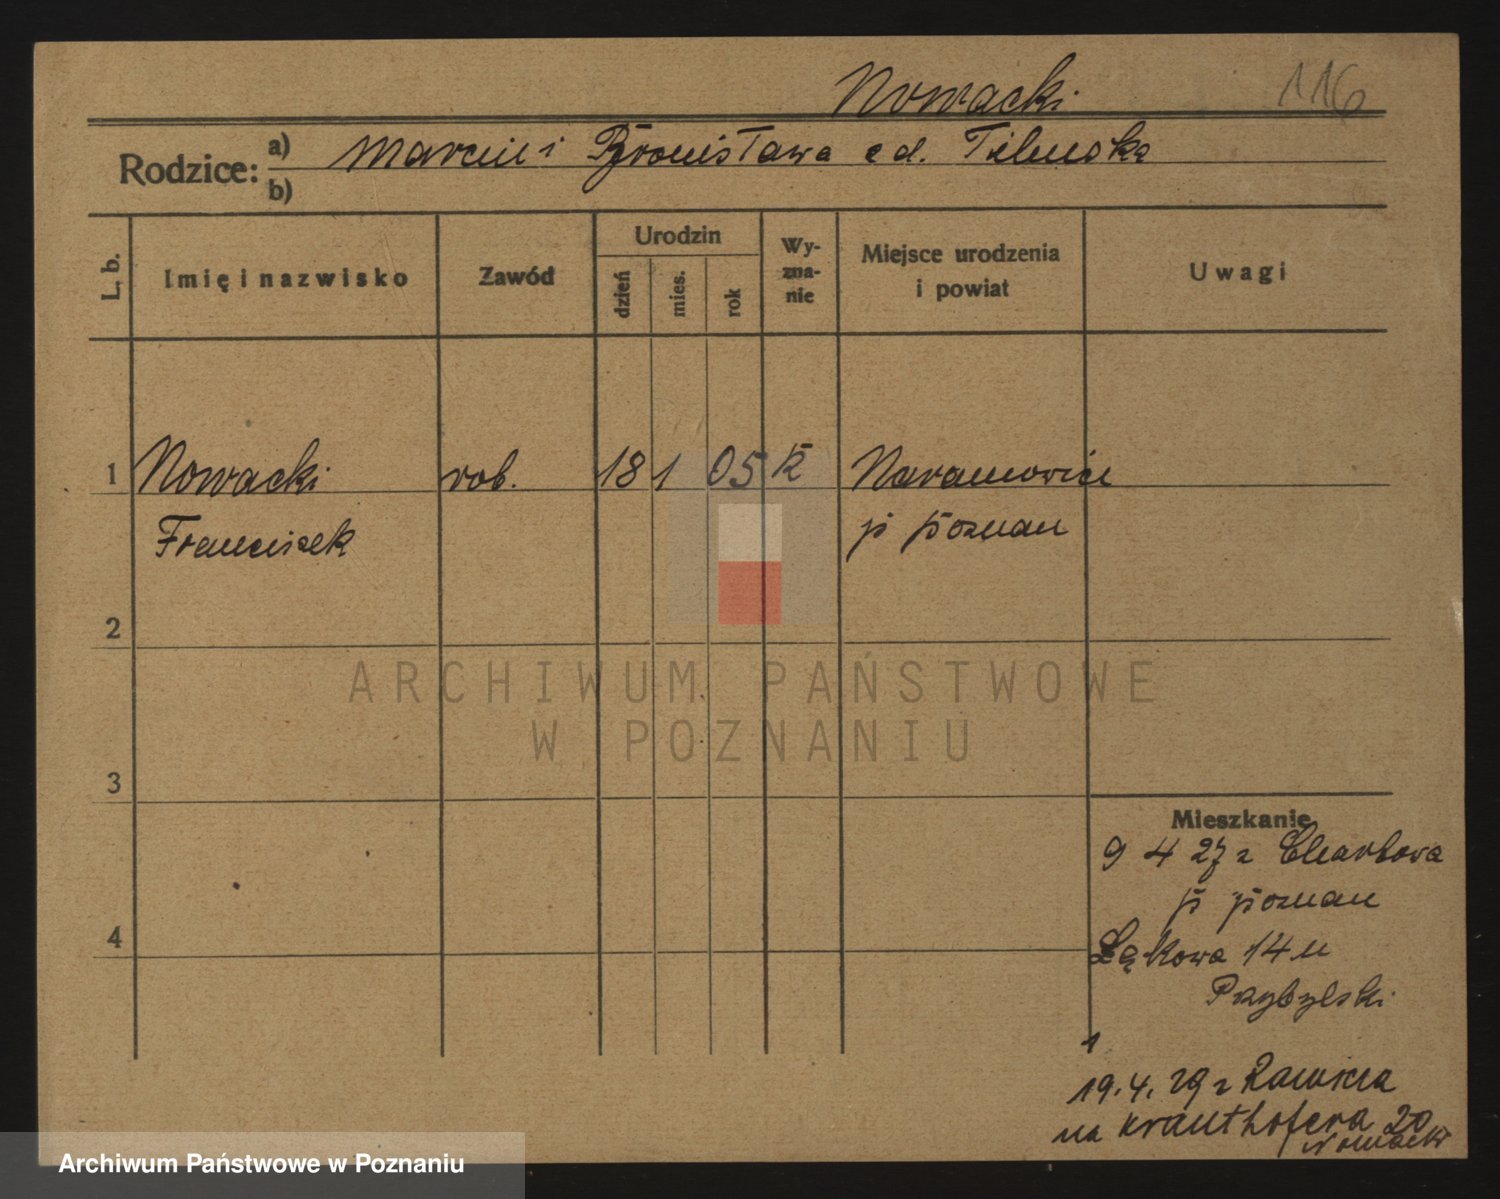 Nowacki 116
Rodzice: a) Marcin i Bronisława
b)
L. b. Imię i nazwisko Zawód Urodzin dzień mies. rok Wy-zna-nie Miejsce urodzenia i powiat Uwagi
1 Nowacki rob. 18 1 05 K Naramowice
Franciszek p Poznan
2
3
4
Mieszkanie
9 4 27 z Chartowa
p Poznan
Łąkowa 14 u
Przybylski
1
19.4.29 z Rawicza
na Krauthofera 20
Nowacki
ARCHIWUM PAŃSTWOWE
W POZNANIU
Archiwum Państwowe w Poznaniu